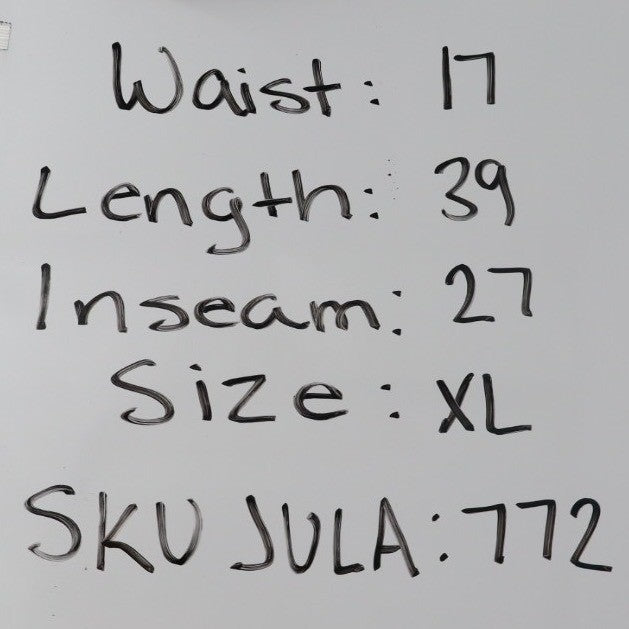 Waist: 17
Length: 39
Inseam: 27
Size: XL
SKU JULA: 772